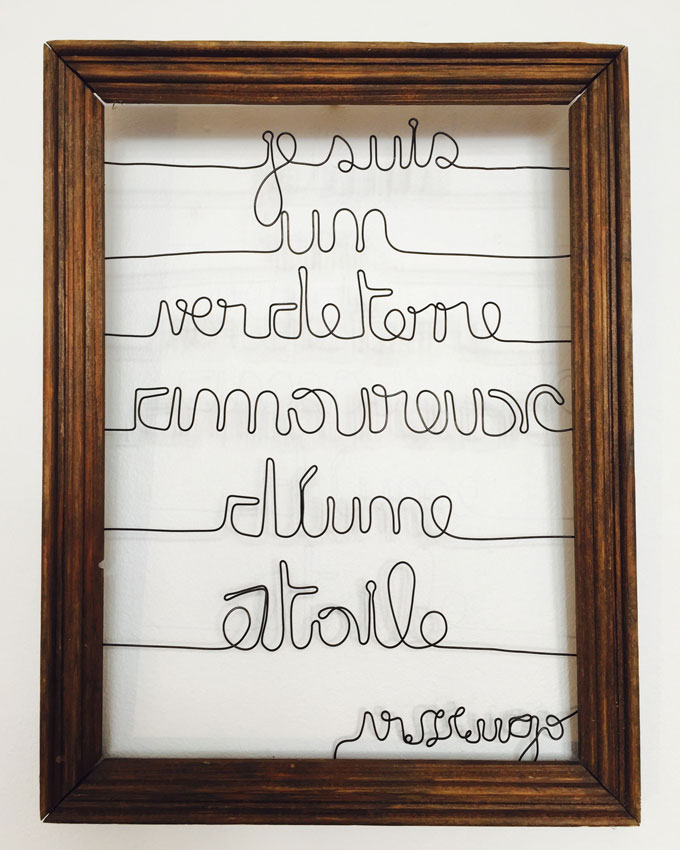 je suis
un
ver de terre
amoureux
d'une
étoile
V. Hugo